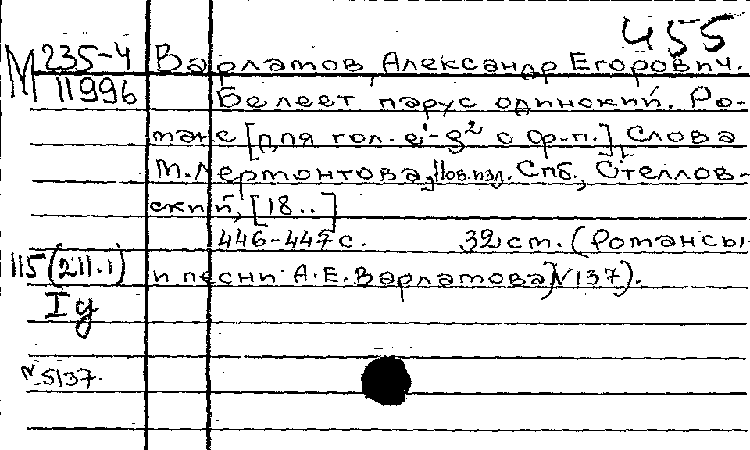 455
М 235-4 Варламов, Александр Егорович.
11996 Белеет парус одинокий. Ро-
манс [для гол. e¹-g² с ф-п.], Слова
М. Лермонтова, Нов. изд. Спб., Стеллов-
ский, [18..]
446-447 с. 32 см. (Романсы
115 (211.1) и песни А.Е. Варламова) N137).
I д
N 5137.